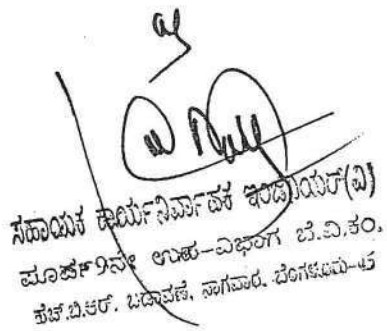 ಸಹಾಯಕ ಕಾರ್ಯನಿರ್ವಾಹಕ ಇಂಜಿನಿಯರ್(ವಿ)
ಉಪ-ವಿಭಾಗ ಬೆ.ವಿ.ಕಂ,
ಹೆಚ್.ಬಿ.ಆರ್. ಬಡಾವಣೆ, ನಾಗವಾರ, ಬೆಂಗಳೂರು-45